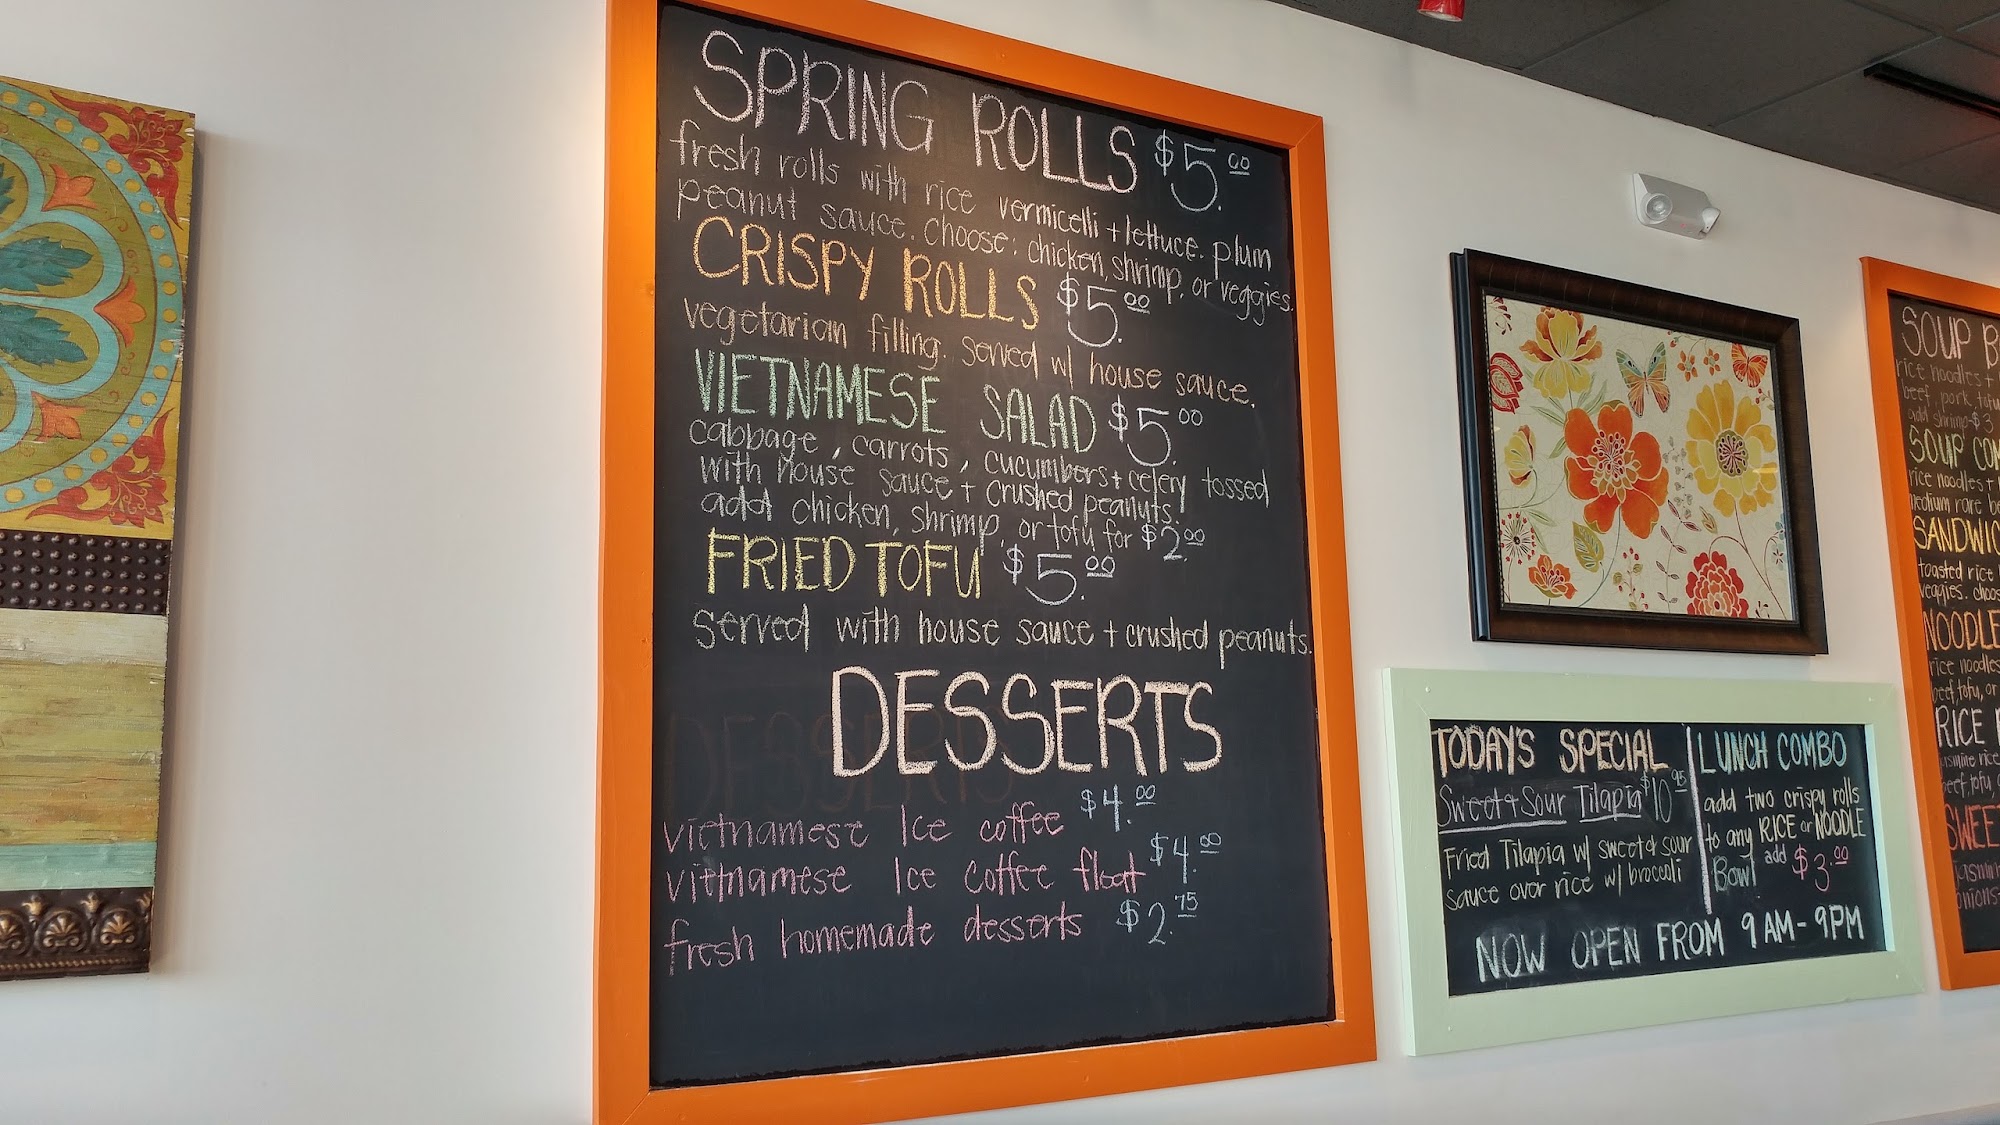 SPRING ROLLS $5.00
fresh rolls with rice vermicelli + lettuce. plum
peanut sauce. choose: chicken, shrimp, or veggies.
CRISPY ROLLS $5.00
vegetarian filling. served w/ house sauce.
VIETNAMESE SALAD $5.00
cabbage, carrots, cucumbers + celery tossed
with house sauce + crushed peanuts.
add chicken, shrimp, or tofu for $2.00
FRIED TOFU $5.00
served with house sauce + crushed peanuts.
DESSERTS
DESSERTS
vietnamese Ice coffee $4.00
vietnamese Ice coffee float $4.00
fresh homemade desserts $2.75
TODAY'S SPECIAL
Sweet & Sour Tilapia $10.95
Fried Tilapia w/ sweet & sour
sauce over rice w/ broccoli
LUNCH COMBO
add two crispy rolls
to any RICE or NOODLE
Bowl add $3.00
NOW OPEN FROM 9 AM - 9 PM
SOUP
rice noodles +
beef, pork, tofu
add shrimp $3
SOUP
rice noodles +
medium rare
toasted rice
veggies.
rice noodles
beef, tofu, or
RICE
beef, tofu,